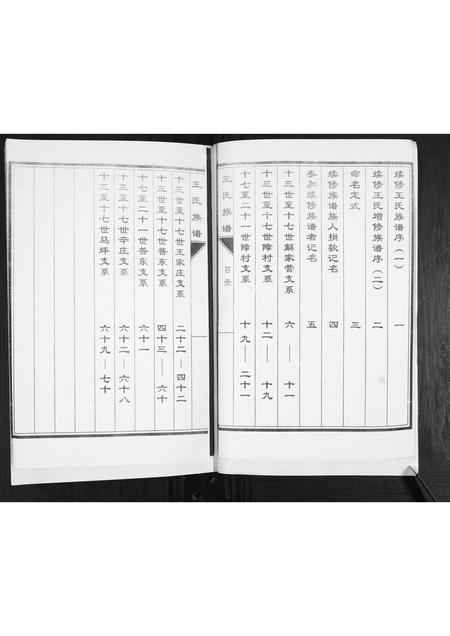 续修王氏族谱序（一） 一
续修王氏增修族谱序（二） 二
命名定式 三
续修族谱族人捐款记名 四
参加续修族谱者记名 五
十三世至十七世解家营支系 六——十一
十三世至十七世障村支系 十二——十九
十七至二十一世障村支系 十九——二十一
王氏族谱 目录 一
王氏族谱
十三世至十七世王家庄支系 二十二——四十二
十三世至十七世普东支系 四十三——六十
十七至二十一世普东支系 六十一
十三至十七世辛庄支系 六十二——六十八
十三至十七世马坪支系 六十九——七十